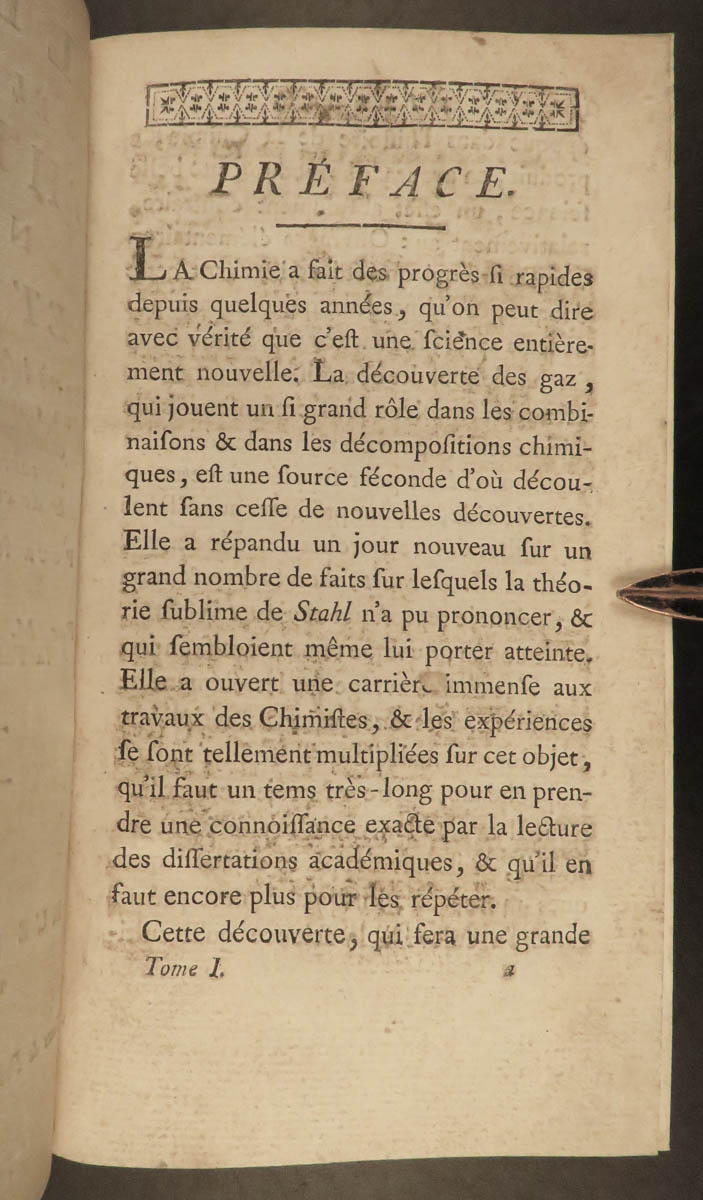 PRÉFACE.
LA Chimie a fait des progrès ſi rapides
depuis quelques années, qu'on peut dire
avec vérité que c'eſt une ſcience entière-
ment nouvelle. La découverte des gaz,
qui jouent un ſi grand rôle dans les combi-
naiſons & dans les décompoſitions chimi-
ques, eſt une ſource féconde d'où décou-
lent ſans ceſſe de nouvelles découvertes.
Elle a répandu un jour nouveau ſur un
grand nombre de faits ſur leſquels la théo-
rie ſublime de Stahl n'a pu prononcer, &
qui ſembloient même lui porter atteinte.
Elle a ouvert une carrière immenſe aux
travaux des Chimiſtes, & les expériences
ſe ſont tellement multipliées ſur cet objet,
qu'il faut un tems très-long pour en pren-
dre une connoiſſance exacte par la lecture
des diſſertations académiques, & qu'il en
faut encore plus pour les répéter.
Cette découverte, qui ſera une grande
Tome I. a